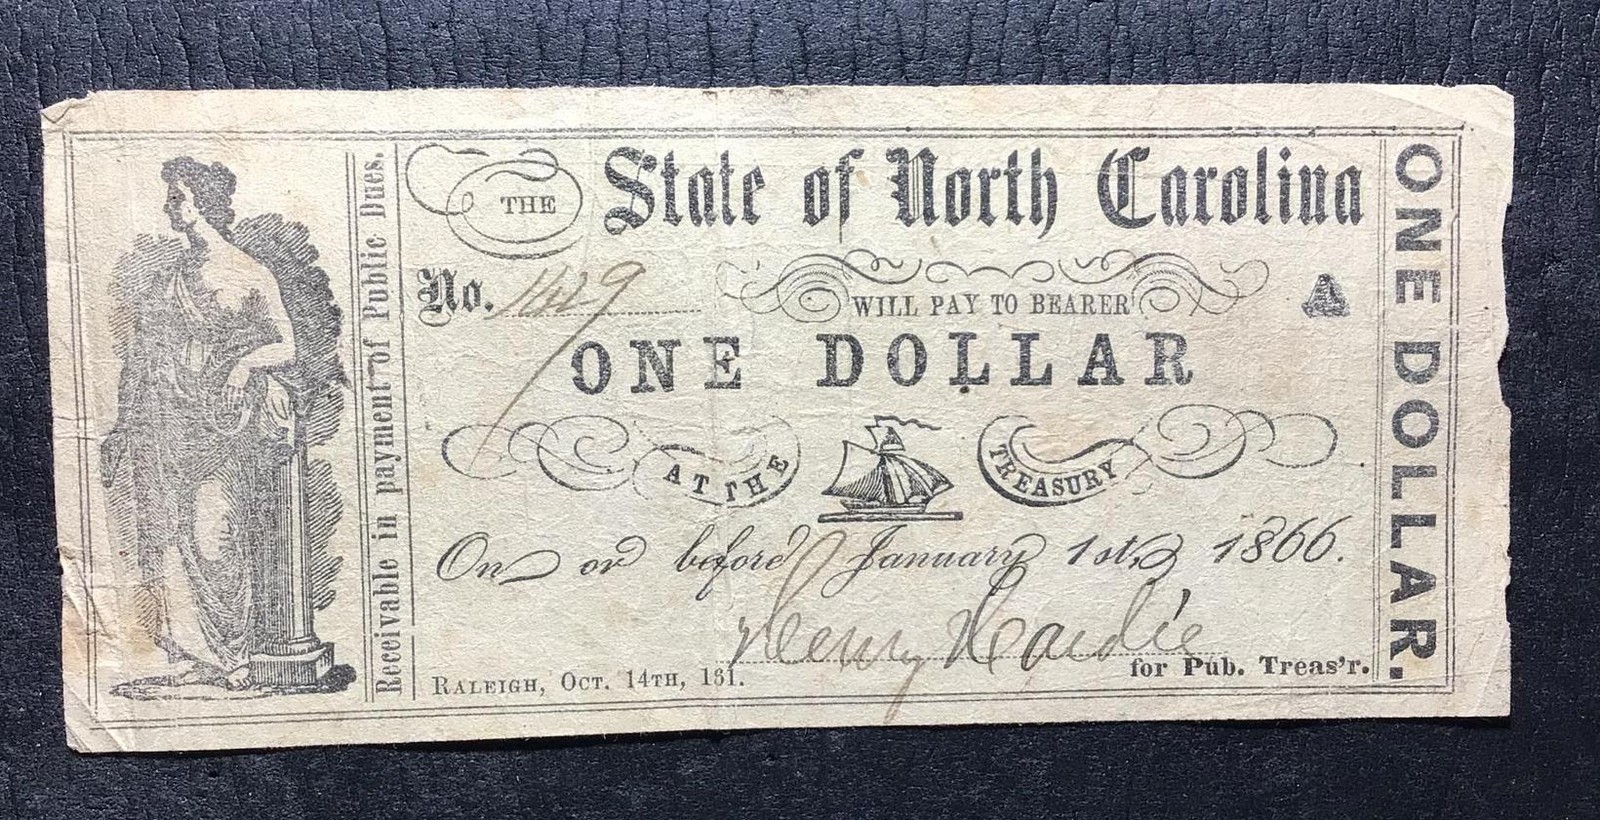 THE State of North Carolina
No. 1429
WILL PAY TO BEARER
A
ONE DOLLAR
AT THE TREASURY
On or before January 1st, 1866.
Henry Hardie
for Pub. Treas'r.
RALEIGH, OCT. 14TH, 1861.
Receivable in payment of Public Dues.
ONE DOLLAR.